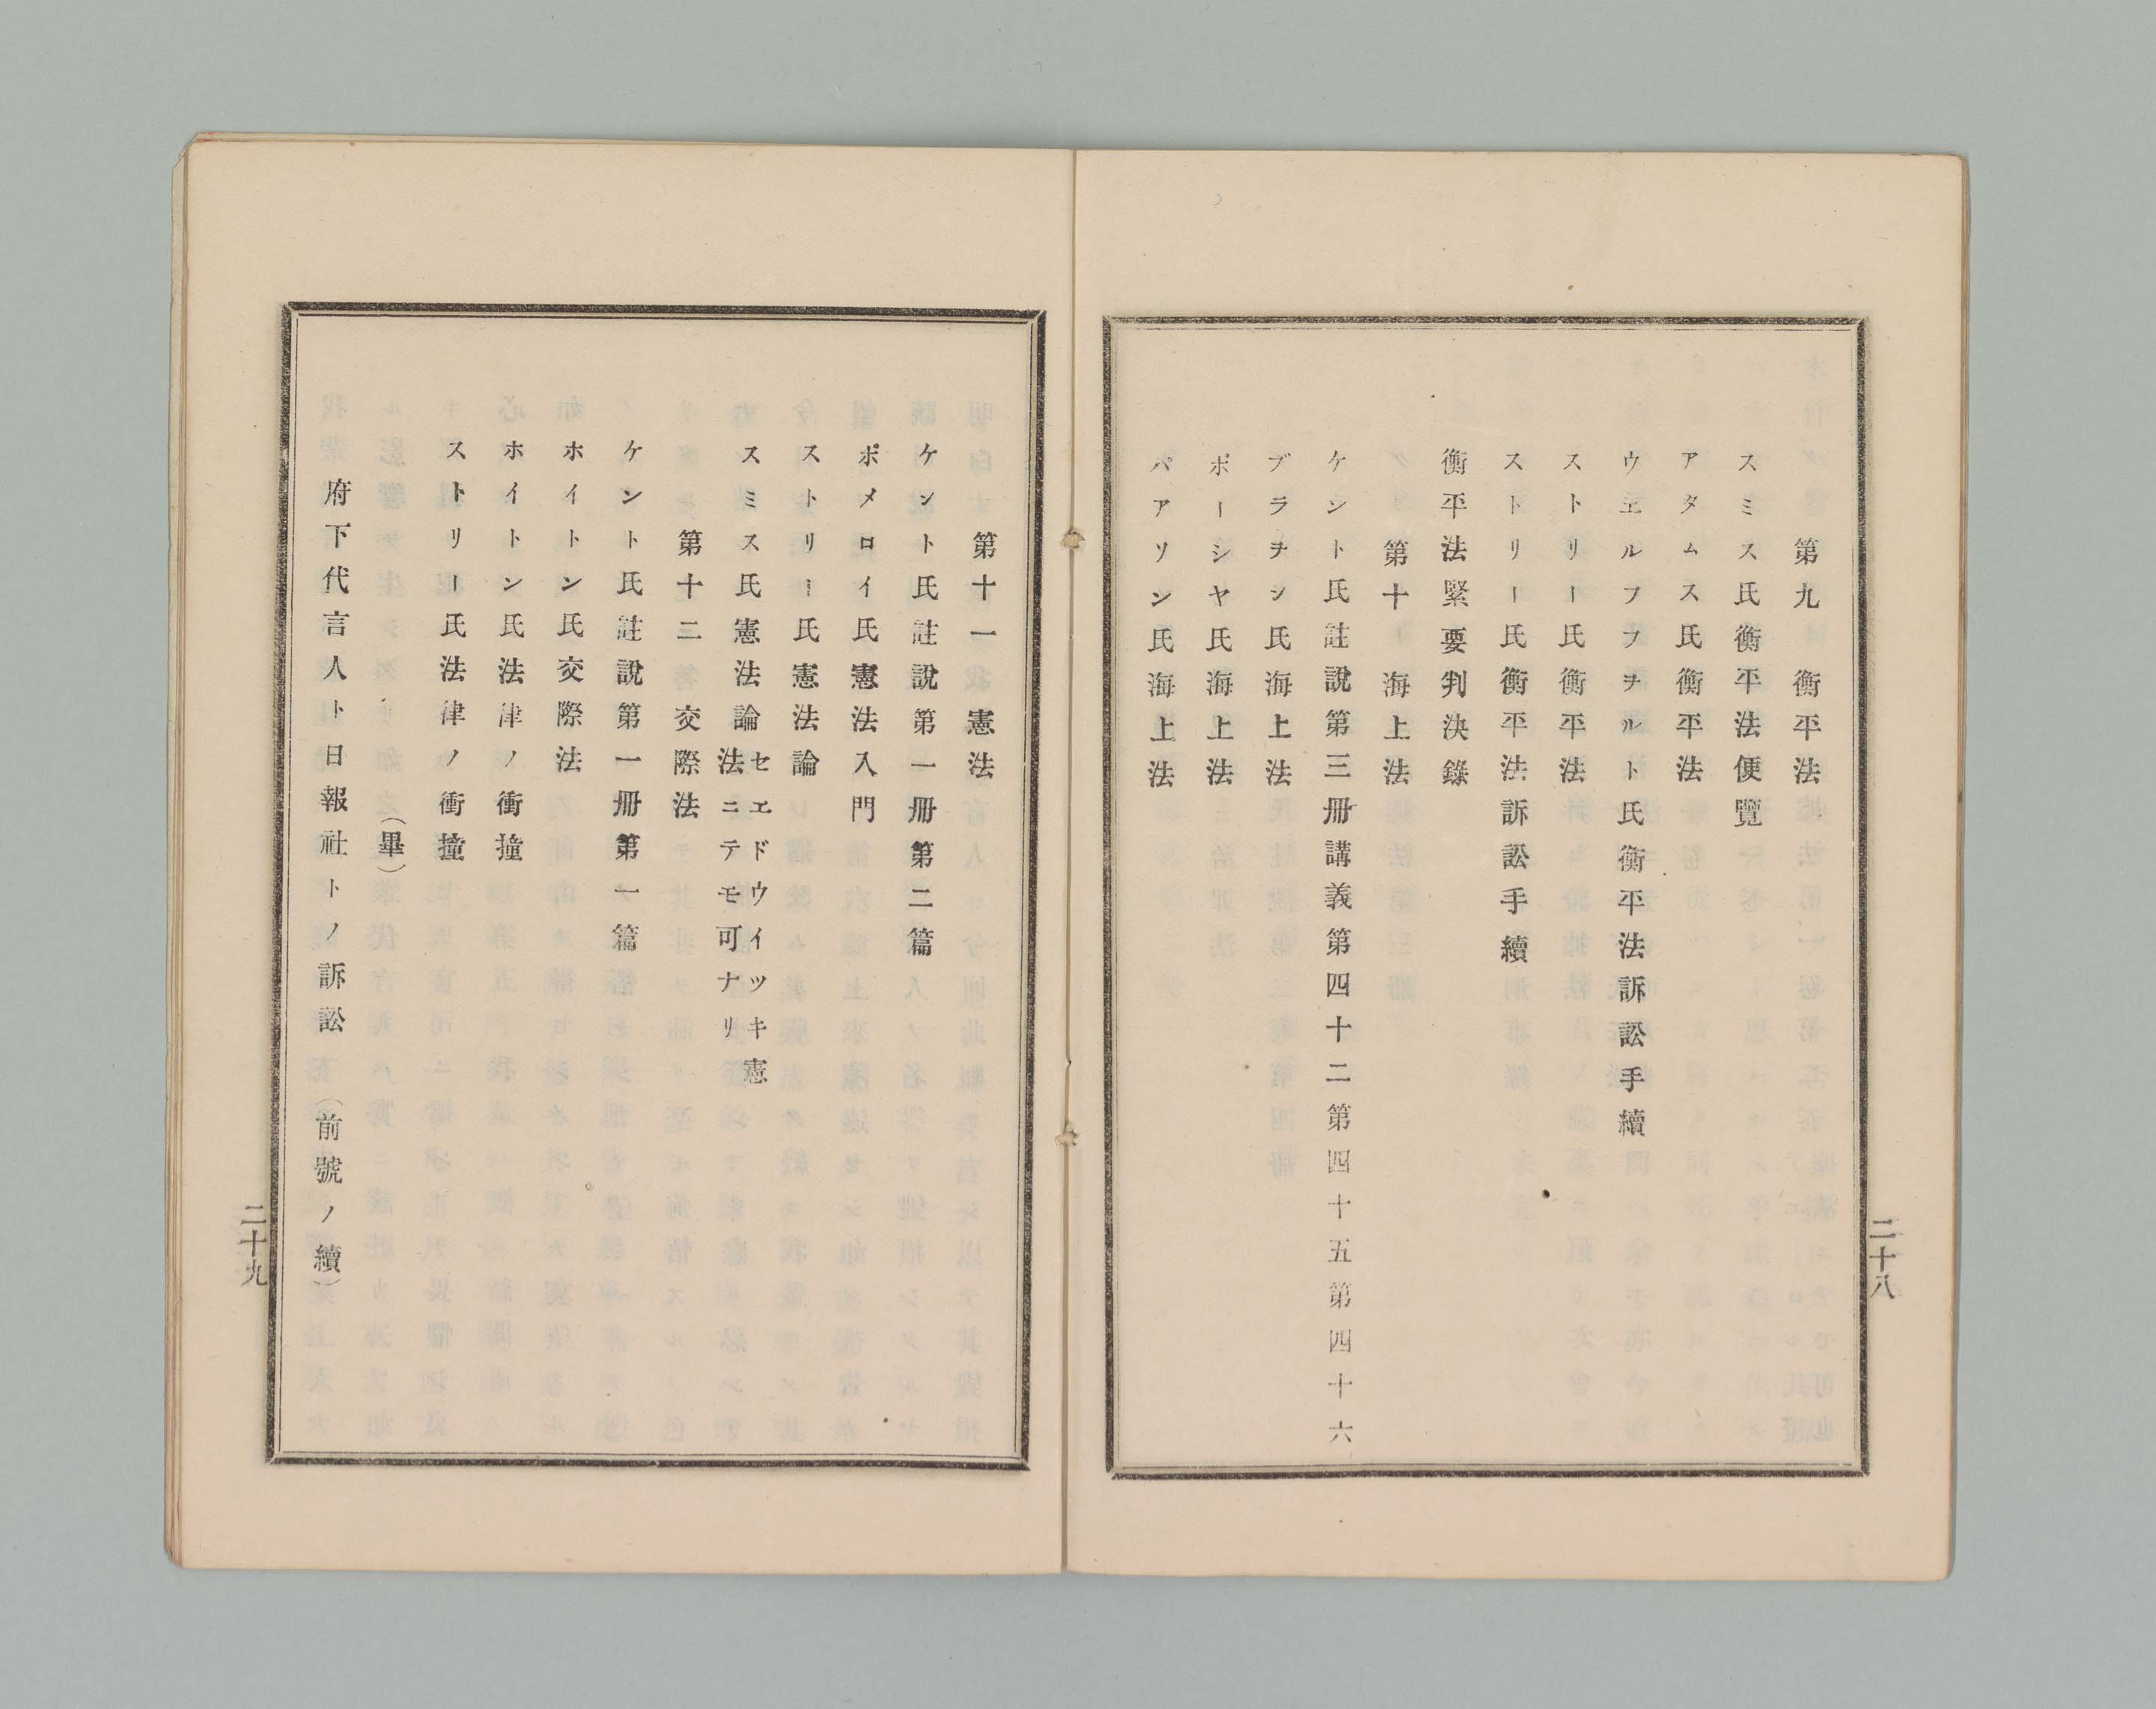 第九　衡平法
スミス氏衡平法便覽
アタムス氏衡平法
ウヱルフフヲルト氏衡平法訴訟手續
ストリー氏衡平法
ストリー氏衡平法訴訟手續
衡平法緊要判決錄
第十　海上法
ケント氏註說第三冊講義第四十二第四十五第四十六
ブラヂン氏海上法
ポーシヤ氏海上法
パアソン氏海上法
二十八
第十一　憲法
ケント氏註說第一冊第二篇
ポメロイ氏憲法入門
ストリー氏憲法論
スミス氏憲法論セエドウイツキ憲法ニテモ可ナリ
第十二　交際法
ケント氏註說第一冊第一篇
ホイトン氏交際法
ホイトン氏法律ノ衝撞
ストリー氏法律ノ衝撞
（畢）
府下代言人ト日報社トノ訴訟（前號ノ續）
二十九